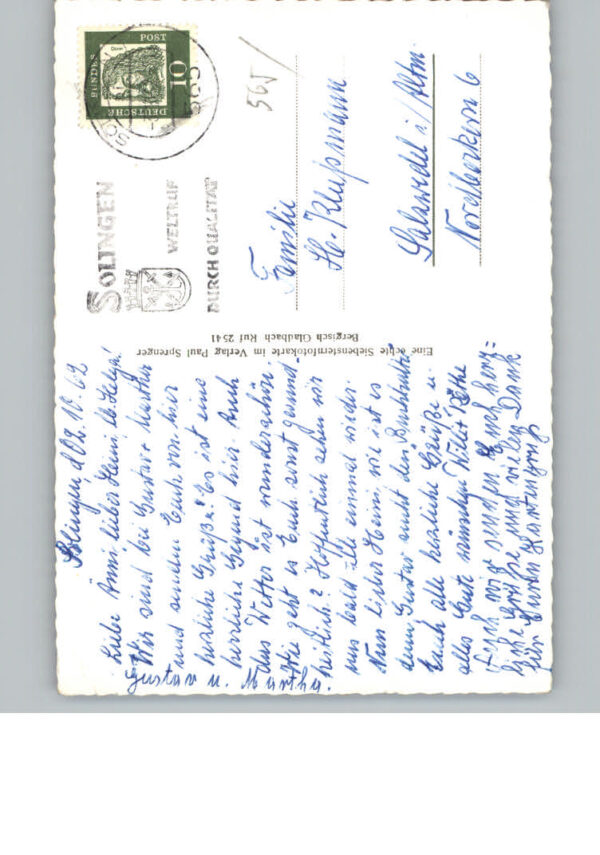 Solingen, d. 02.10.62
Liebe Änni, lieber Heini u.
Wir sind bei Gustav + Martha
und senden Euch von hier
herzliche Grüße. Es ist eine
herrliche Gegend hier. Auch
das Wetter ist wunderschön.
Wie geht es Euch sonst gesund-
heitlich? Hoffentlich sehen wir
uns bald alle einmal wieder.
Nun lieber Heini, wie ist es
denn, Gustav sucht den
Euch alle herzliche Grüße u.
alles Gute Willi + Käthe
Auch wir senden Euch herz=
liche Grüße und vielen Dank
für Euren
Gustav u. Martha.
Eine echte Siebensternfotokarte im Verlag Paul Sprenger
Bergisch Gladbach Ruf 2541
SOLINGEN
WELTRUF
DURCH QUALITÄT
DEUTSCHE
BUNDES
POST
10
565
Familie
H. Klupsmann
Salzwedel i/Altm.
6